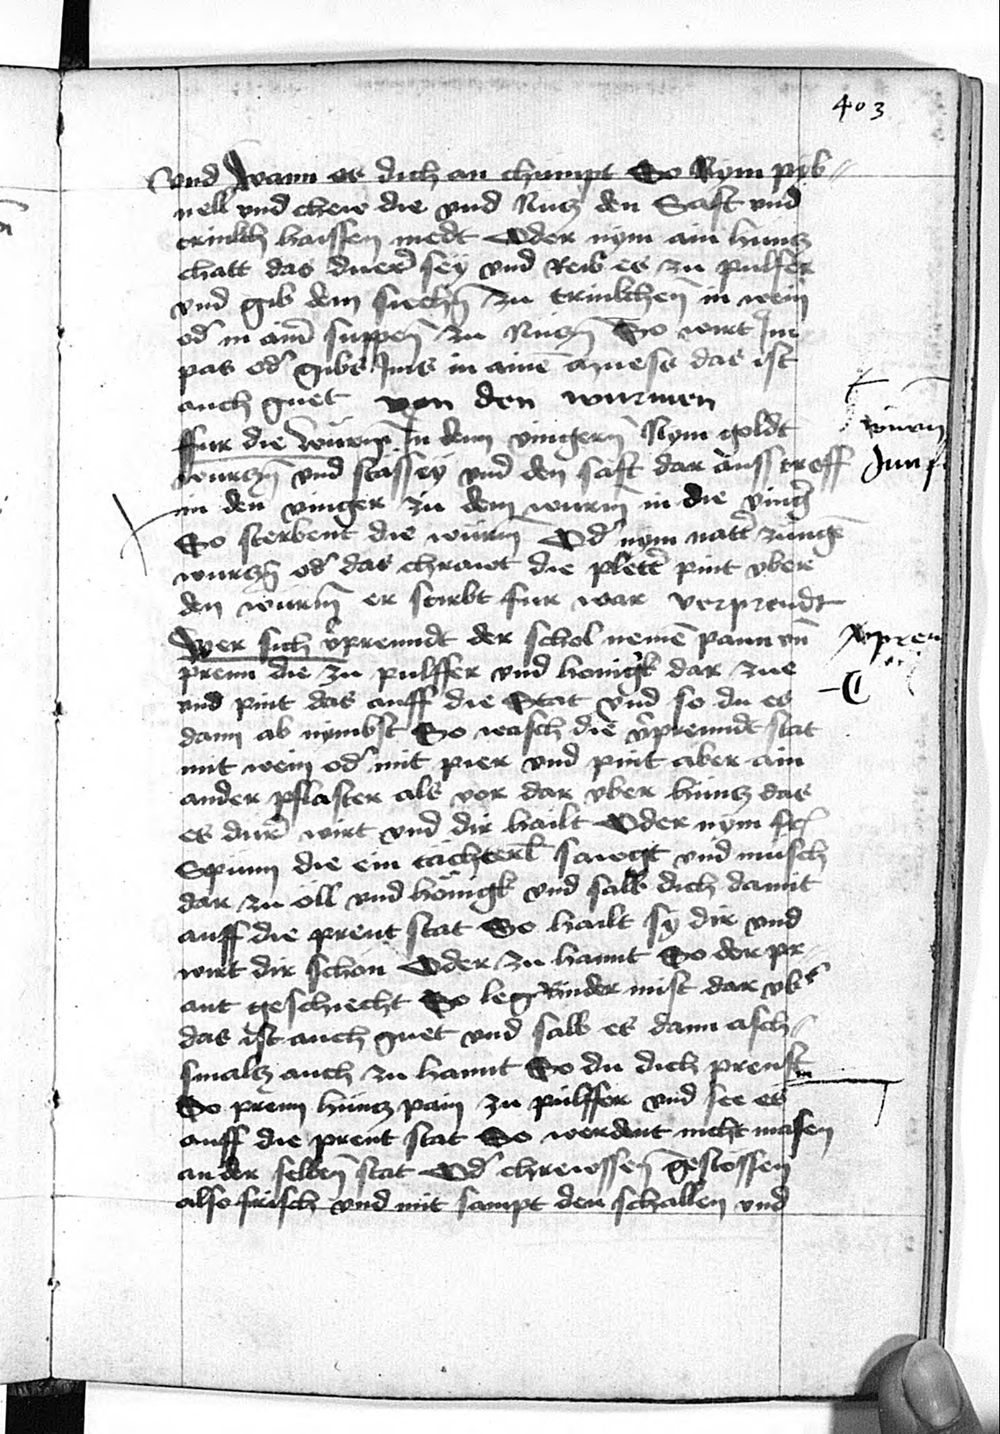 403
vnd wann es dich an chumpt So Nym pib-
nell vnd chew die vnd Nucz den Saft vnd
trinkch haissen medt Oder nym ain huncz
chatt das duerr sey vnd Reib es zu pulfer
vnd gib dem siechn zu trinkchen in wein
od in ainr suppen zu Nuczn So wirt Jm
pas od gibs Jms in aine mues das ist
auch guet von den wurmen
fur die wurm Jn den vingern Nym goldt
wurczn vnd stass sey vnd den saft dar auss treff
in den vinger zu dem wurm in die ving
So sterbent die wurm Od nym natt zungen
wurczn od das chrawt die plett pint vber
den wurm er stirbt fur war verprendt
Wer sich vprenndt der schol nemen pann vn
prenn die zu pulffer vnd honigk dar zue
vnd pint das auff die Stat vnd so du es
dann ab nymbst So wasch die vprenndt stat
mit wein od mit pier vnd pint aber ain
ander pflaster als vor dar vber huncz das
es durr wirt vnd dir hailt Oder nym
Spinn die ein tächterl sawgt vnd misch
dar zu öll vnd hönigk vnd salb dich damit
auff die prent stat So hailt sy dir vnd
wirt dir schon Oder zu hannt So der pr-
ant geschiecht So leg Rinder mist dar vb
das ist auch guet vnd salb es dann asch-
smalcz auch zu hannt So du dich prenst
So prenn huncz pain zu pulffer vnd see es
auff die prent stat So werdent nicht masen
an der selben stat Od chrewssen gestossen
also frisch vnd mit sampt den schallen vnd